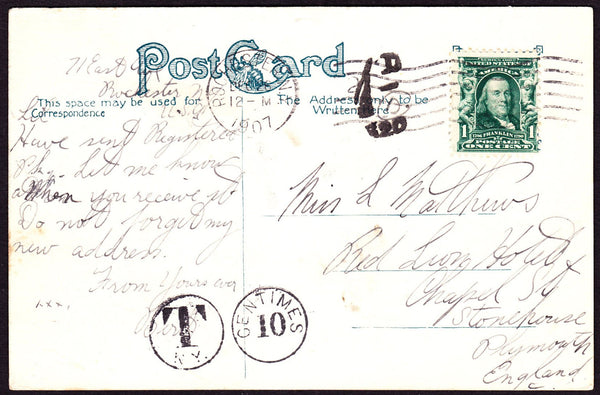 Post Card
This space may be used for
Correspondence
The Address only to be
Written Here
ROCHESTER
12-M
1907
1D
120
1 FRANKLIN 1
ONE CENT
71 East
Rochester N
U.S.
Have sent Registered
Pkg. Let me know
when you receive it
Do not forget my
new address.
From Yours ever
xxx
T
N.Y.
CENTIMES
10
Miss L Matthews
Red Lion Hotel
Chapel St
Stonehouse
Plymouth
England